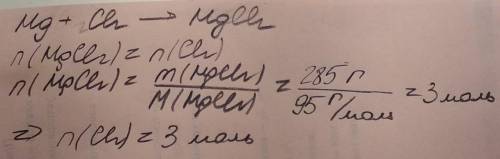 Mg + Cl₂ → MgCl₂
n(MgCl₂) = n(Cl₂)
n(MgCl₂) = m(MgCl₂) / M(MgCl₂) = 285 г / 95 г/моль = 3 моль
⇒ n(Cl₂) = 3 моль